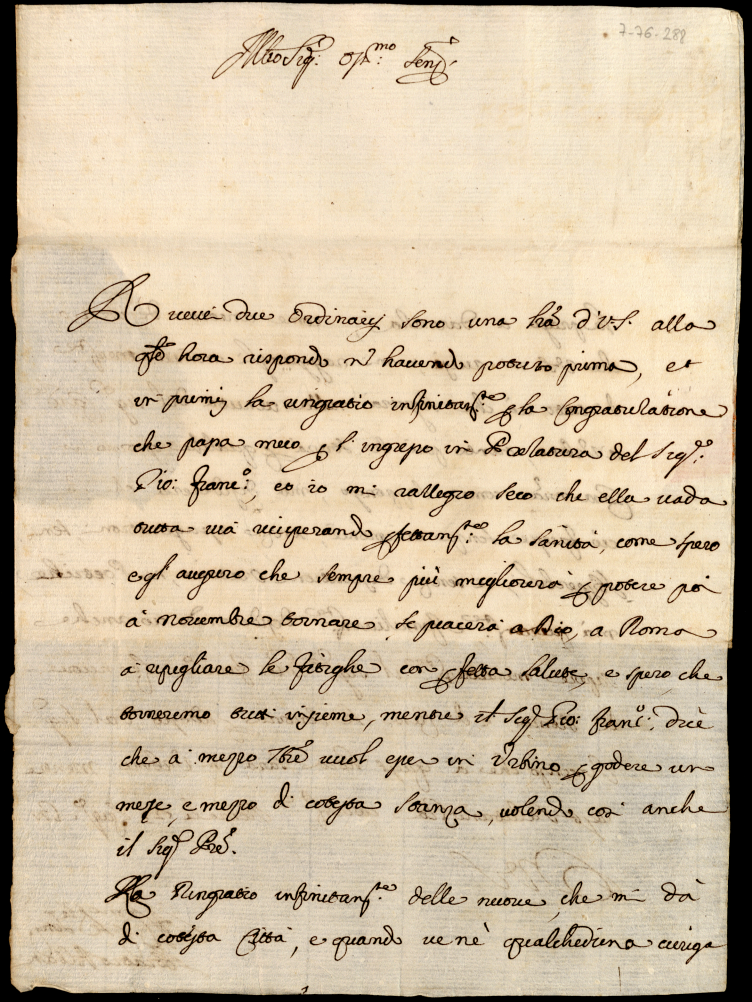 7-76-288
Ill.mo Sig.r
Ricevei due Ordinarij sono una lra d'V.S. alla
qle hora rispondo nō havendo potuto prima, et
in primis la ringratio infinitamte p la Congratulatione
che passa meco p l'ingresso in Prelatura del Sigr:
Gio: Franco:, et io mi rallegro seco che ella vada
tutta via ricuperando pfettamte: la sanità, come spero
e gl'auguro che sempre più migliorerà p potere poi
à novembre tornare se piacerà a Dio, a Roma
à ripigliare le fatighe con pfetta salute, e spero che
torneremo tutti insieme, mentre il Sigr Gio: Franco: dice
che à mezzo 7bre vuol esser in Urbino p godere un
mese, e mezzo di cotesta stanza, volendo così anche
il Sigr Pre.
La Ringratio infinitamte delle nuove, che mi dà
di cotesta Città, e quando ve nè qualcheduna curiosa